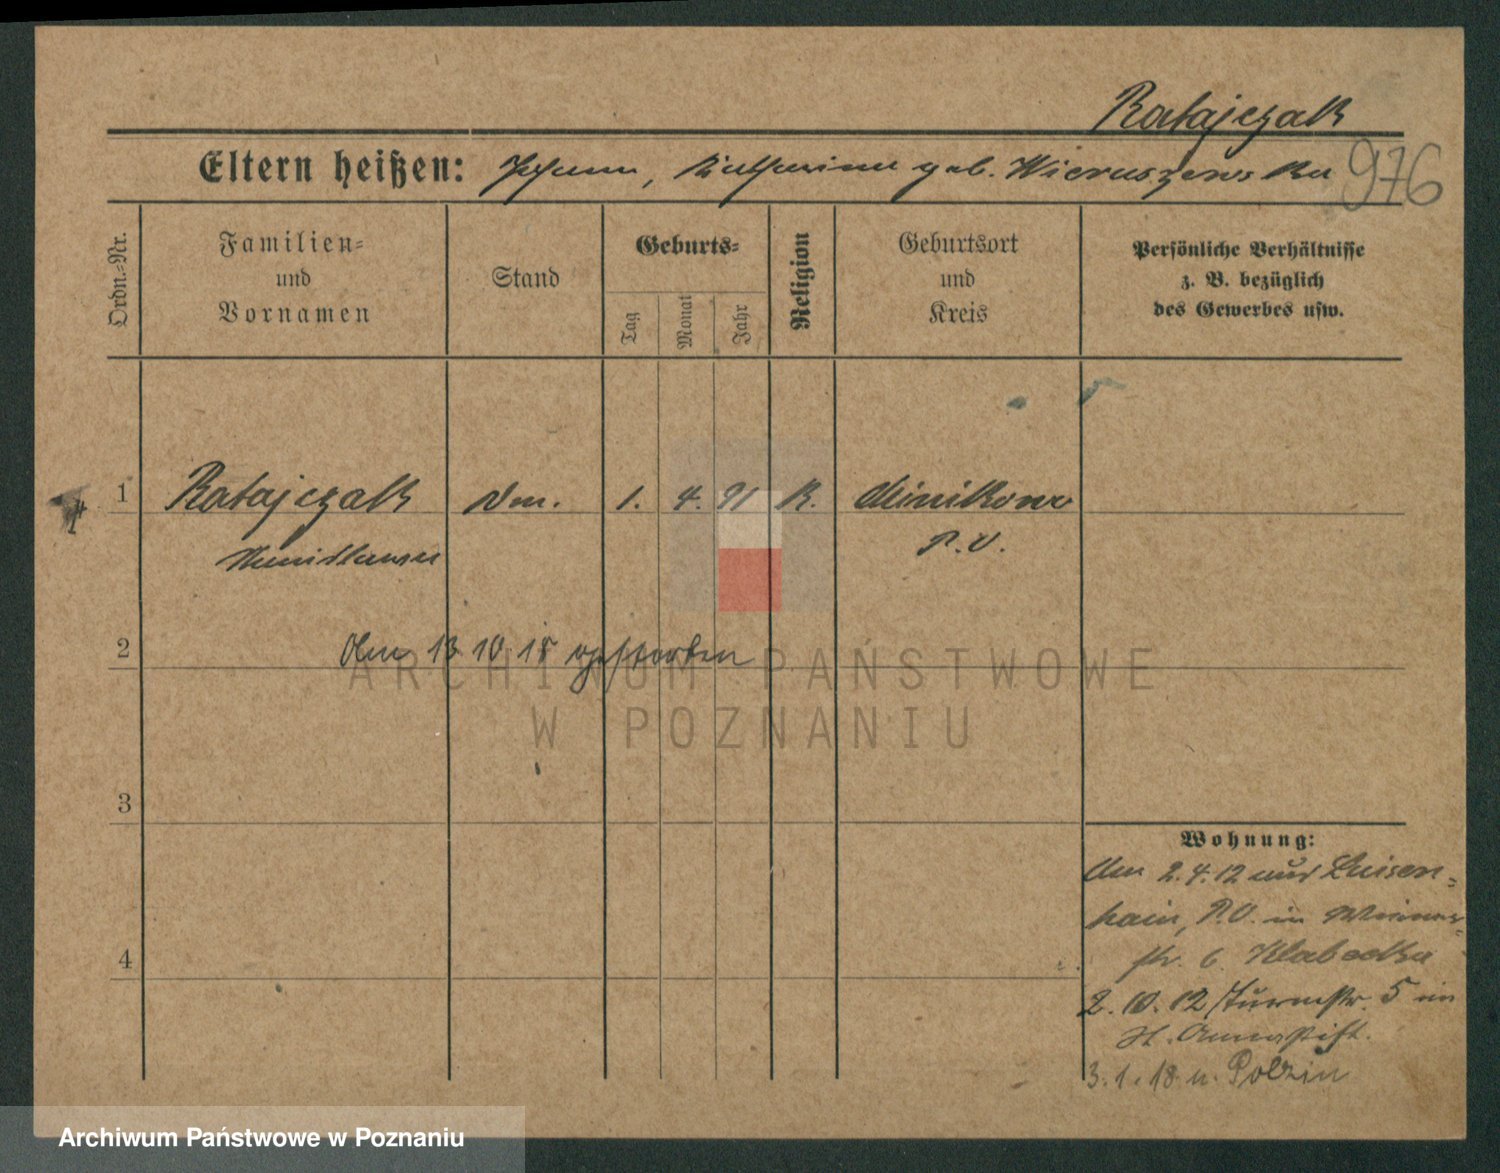 Ratajczak
Eltern heißen: Johann, Katharina geb. Wieruszewska
976
Ordn.-Nr.
Familien-
und
Vornamen
Stand
Geburts-
Tag
Monat
Jahr
Religion
Geburtsort
und
Kreis
Persönliche Verhältnisse
z. B. bezüglich
des Gewerbes usw.
1 Ratajczak 1. 4. 91 K. Minikowo
P.O.
2
Am 13 10 18 gestorben
ARCHIWUM PAŃSTWOWE
W POZNANIU
3
Wohnung:
Am 2.4.12 aus Luisen-
hain, P.O. in
4
str. 6
2.10.12 Turmstr. 5 im
St. Annastift.
3.1.18 n. Polzin
Archiwum Państwowe w Poznaniu